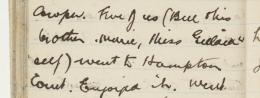 Cowper. Five of us (Bell & his
brother. Marie, Miss & my
self) went to Hampton
Court. Enjoyed it. Went